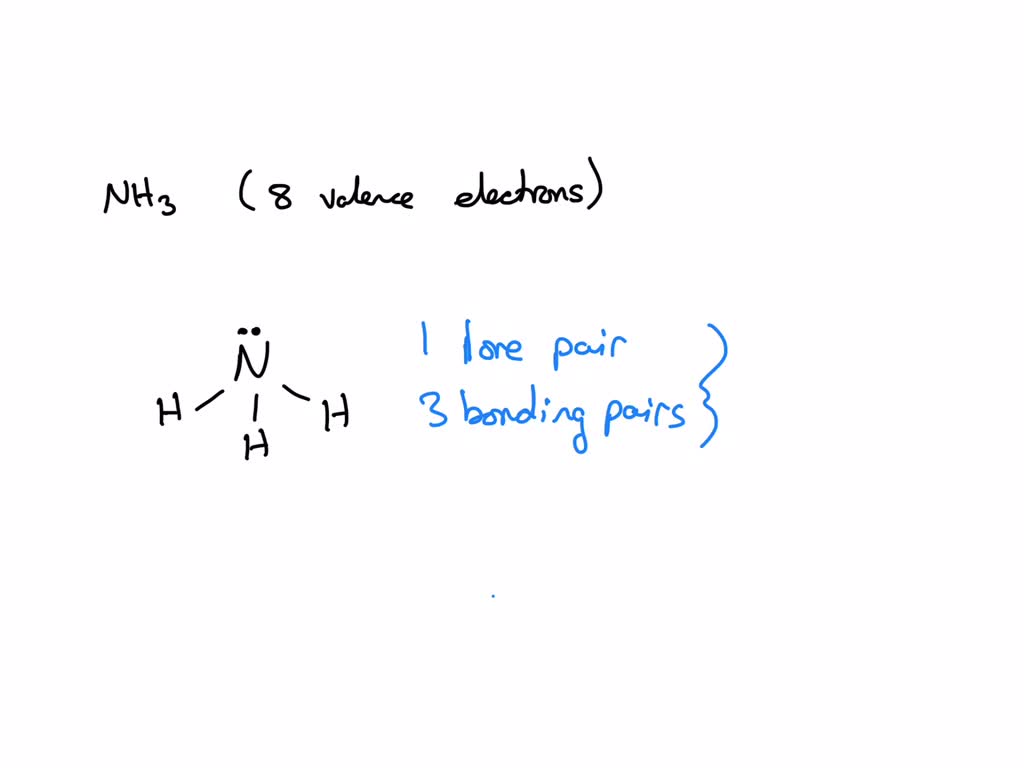 NH₃ (8 valence electrons)
N
H H
H
1 lone pair
3 bonding pairs